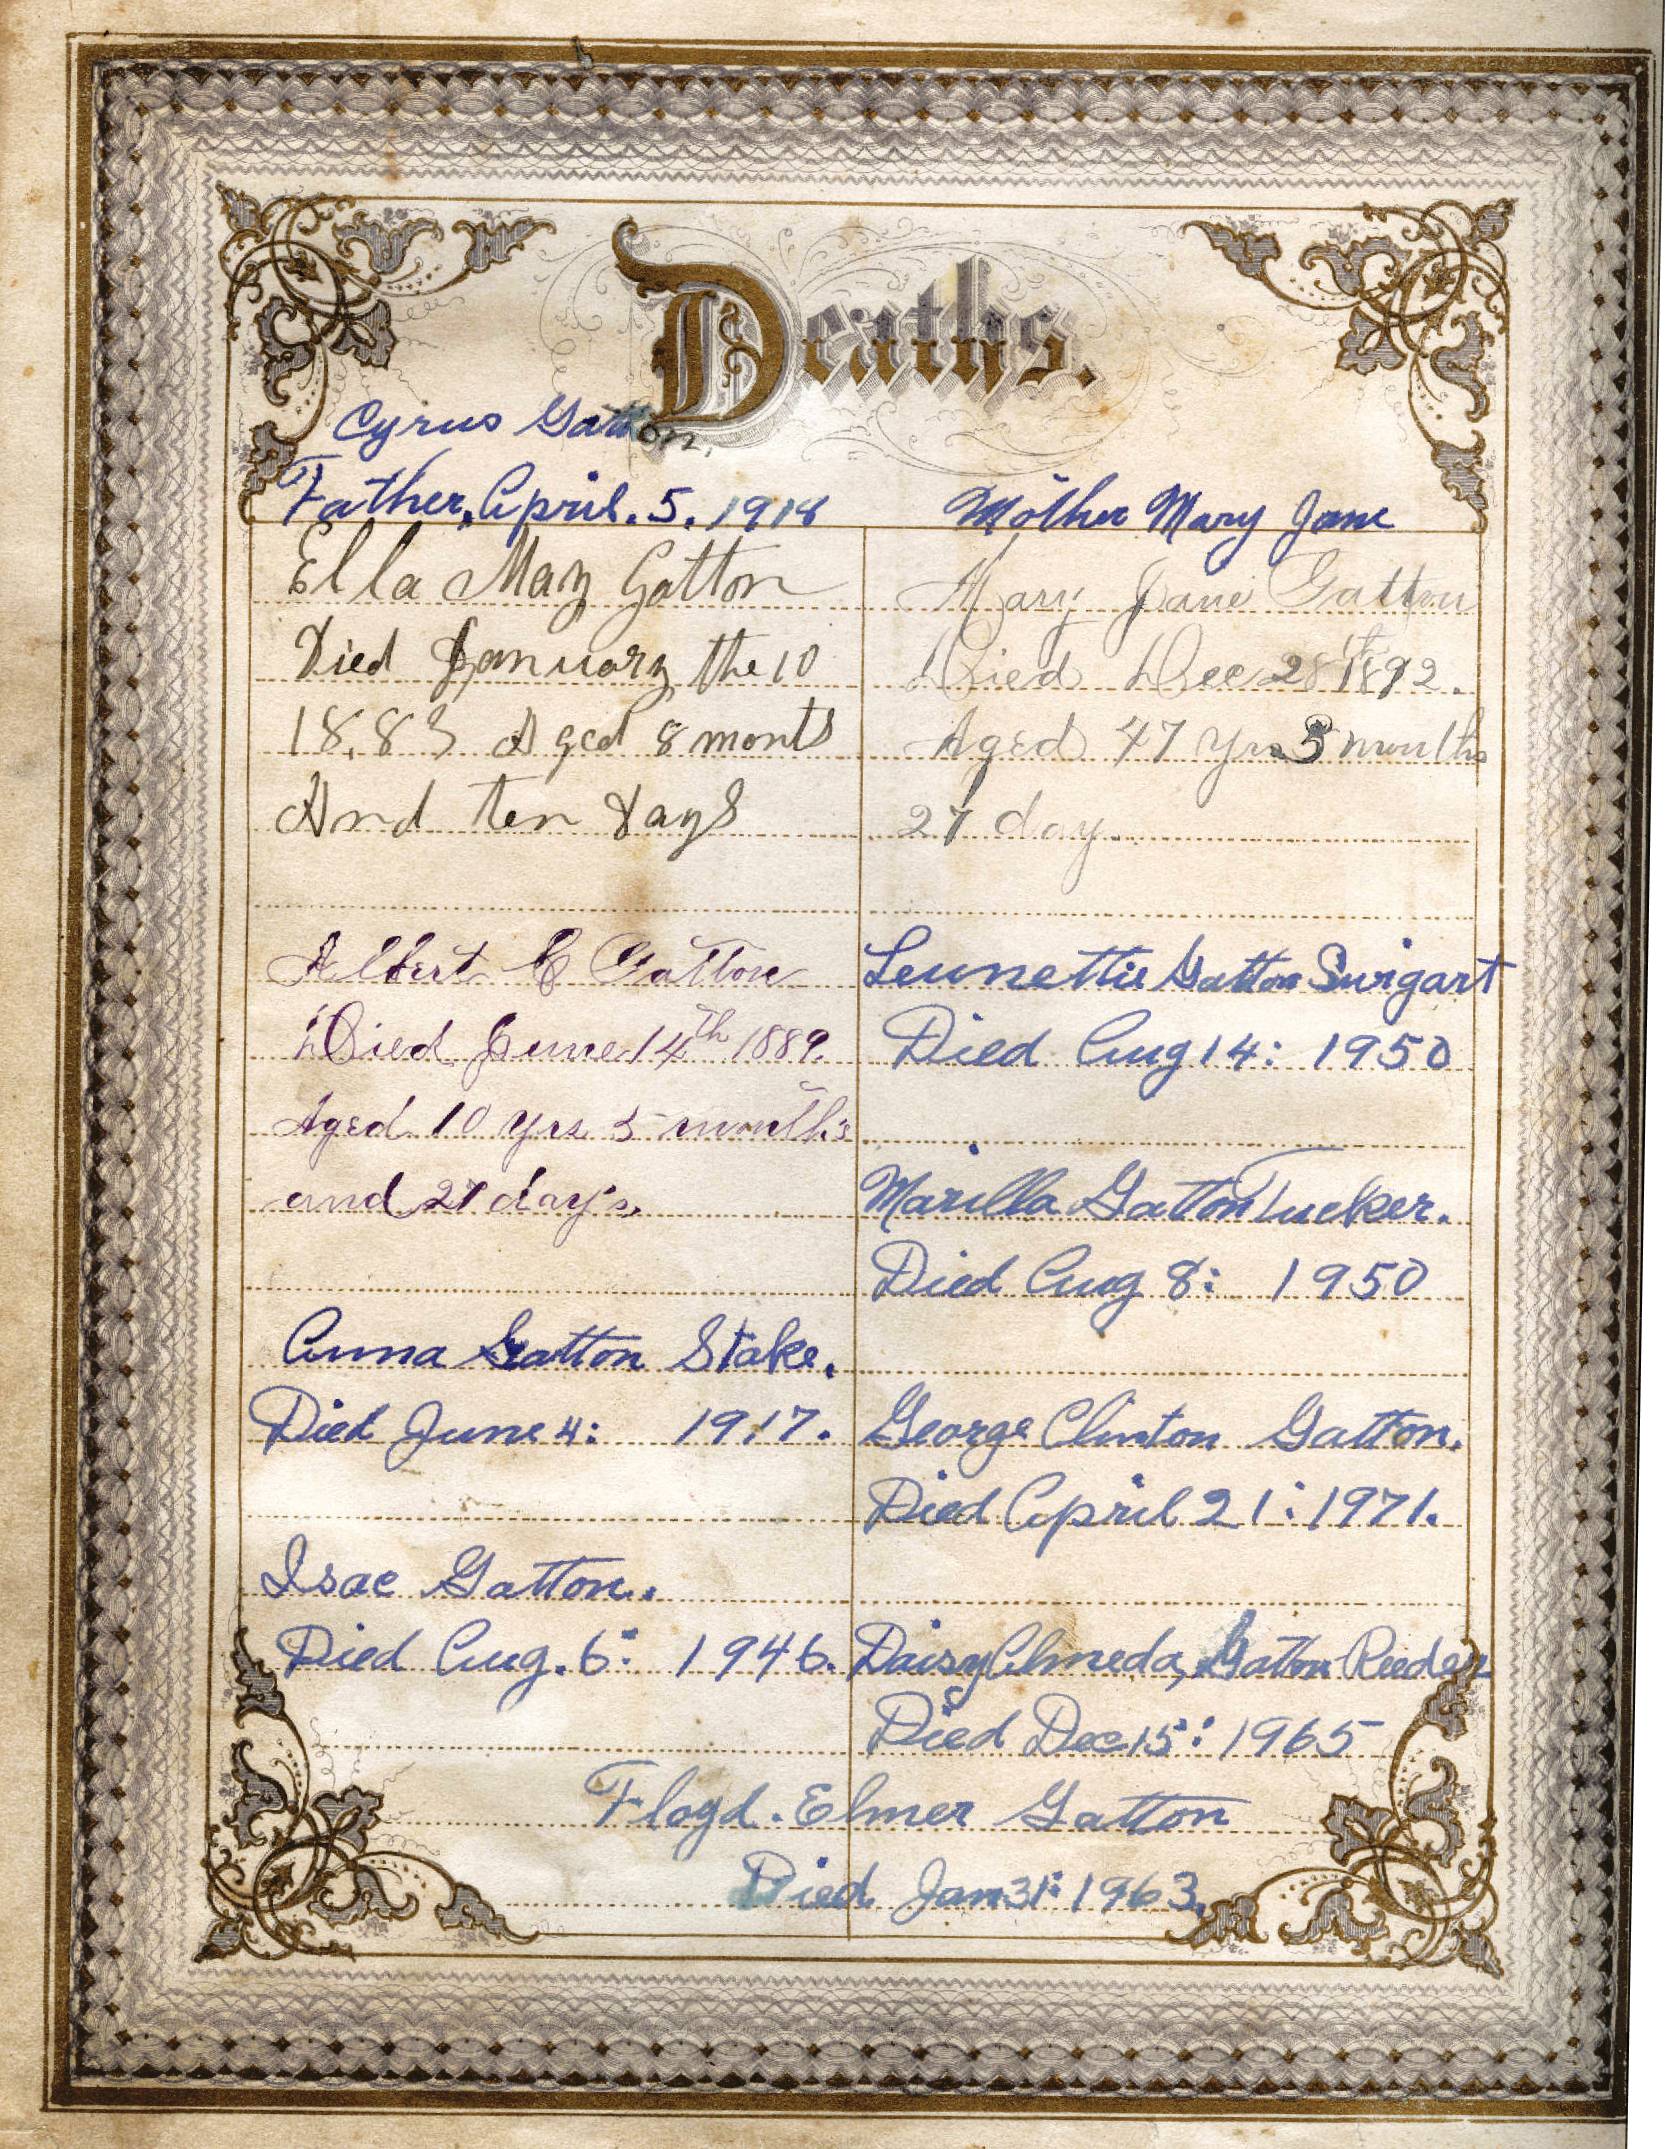 Deaths.
Cyrus Gatton,
Father, April. 5. 1918
Ella May Gatton
Died January the 10
18.83 Aged 8 monts
And ten days
Albert C Gatton
Died June 14th 1889.
Aged 10 yrs 5 months
and 27 days,
Anna Gatton Stake.
Died June 4: 1917.
Isac Gatton.
Died Aug. 6: 1946.
Mother Mary Jane
Mary Jane Gatton
Died Dec 28th 1892.
Aged 47 yrs 5 months
27 day.
Leunettie Gatton Swigart
Died Aug 14: 1950
Marilla Gatton Tucker.
Died Aug 8: 1950
George Clinton Gatton.
Died April 21: 1971.
Daisy Almeda, Gatton Reeder
Died Dec 15: 1965
Floyd. Elmer Gatton
Died Jan 31: 1963.